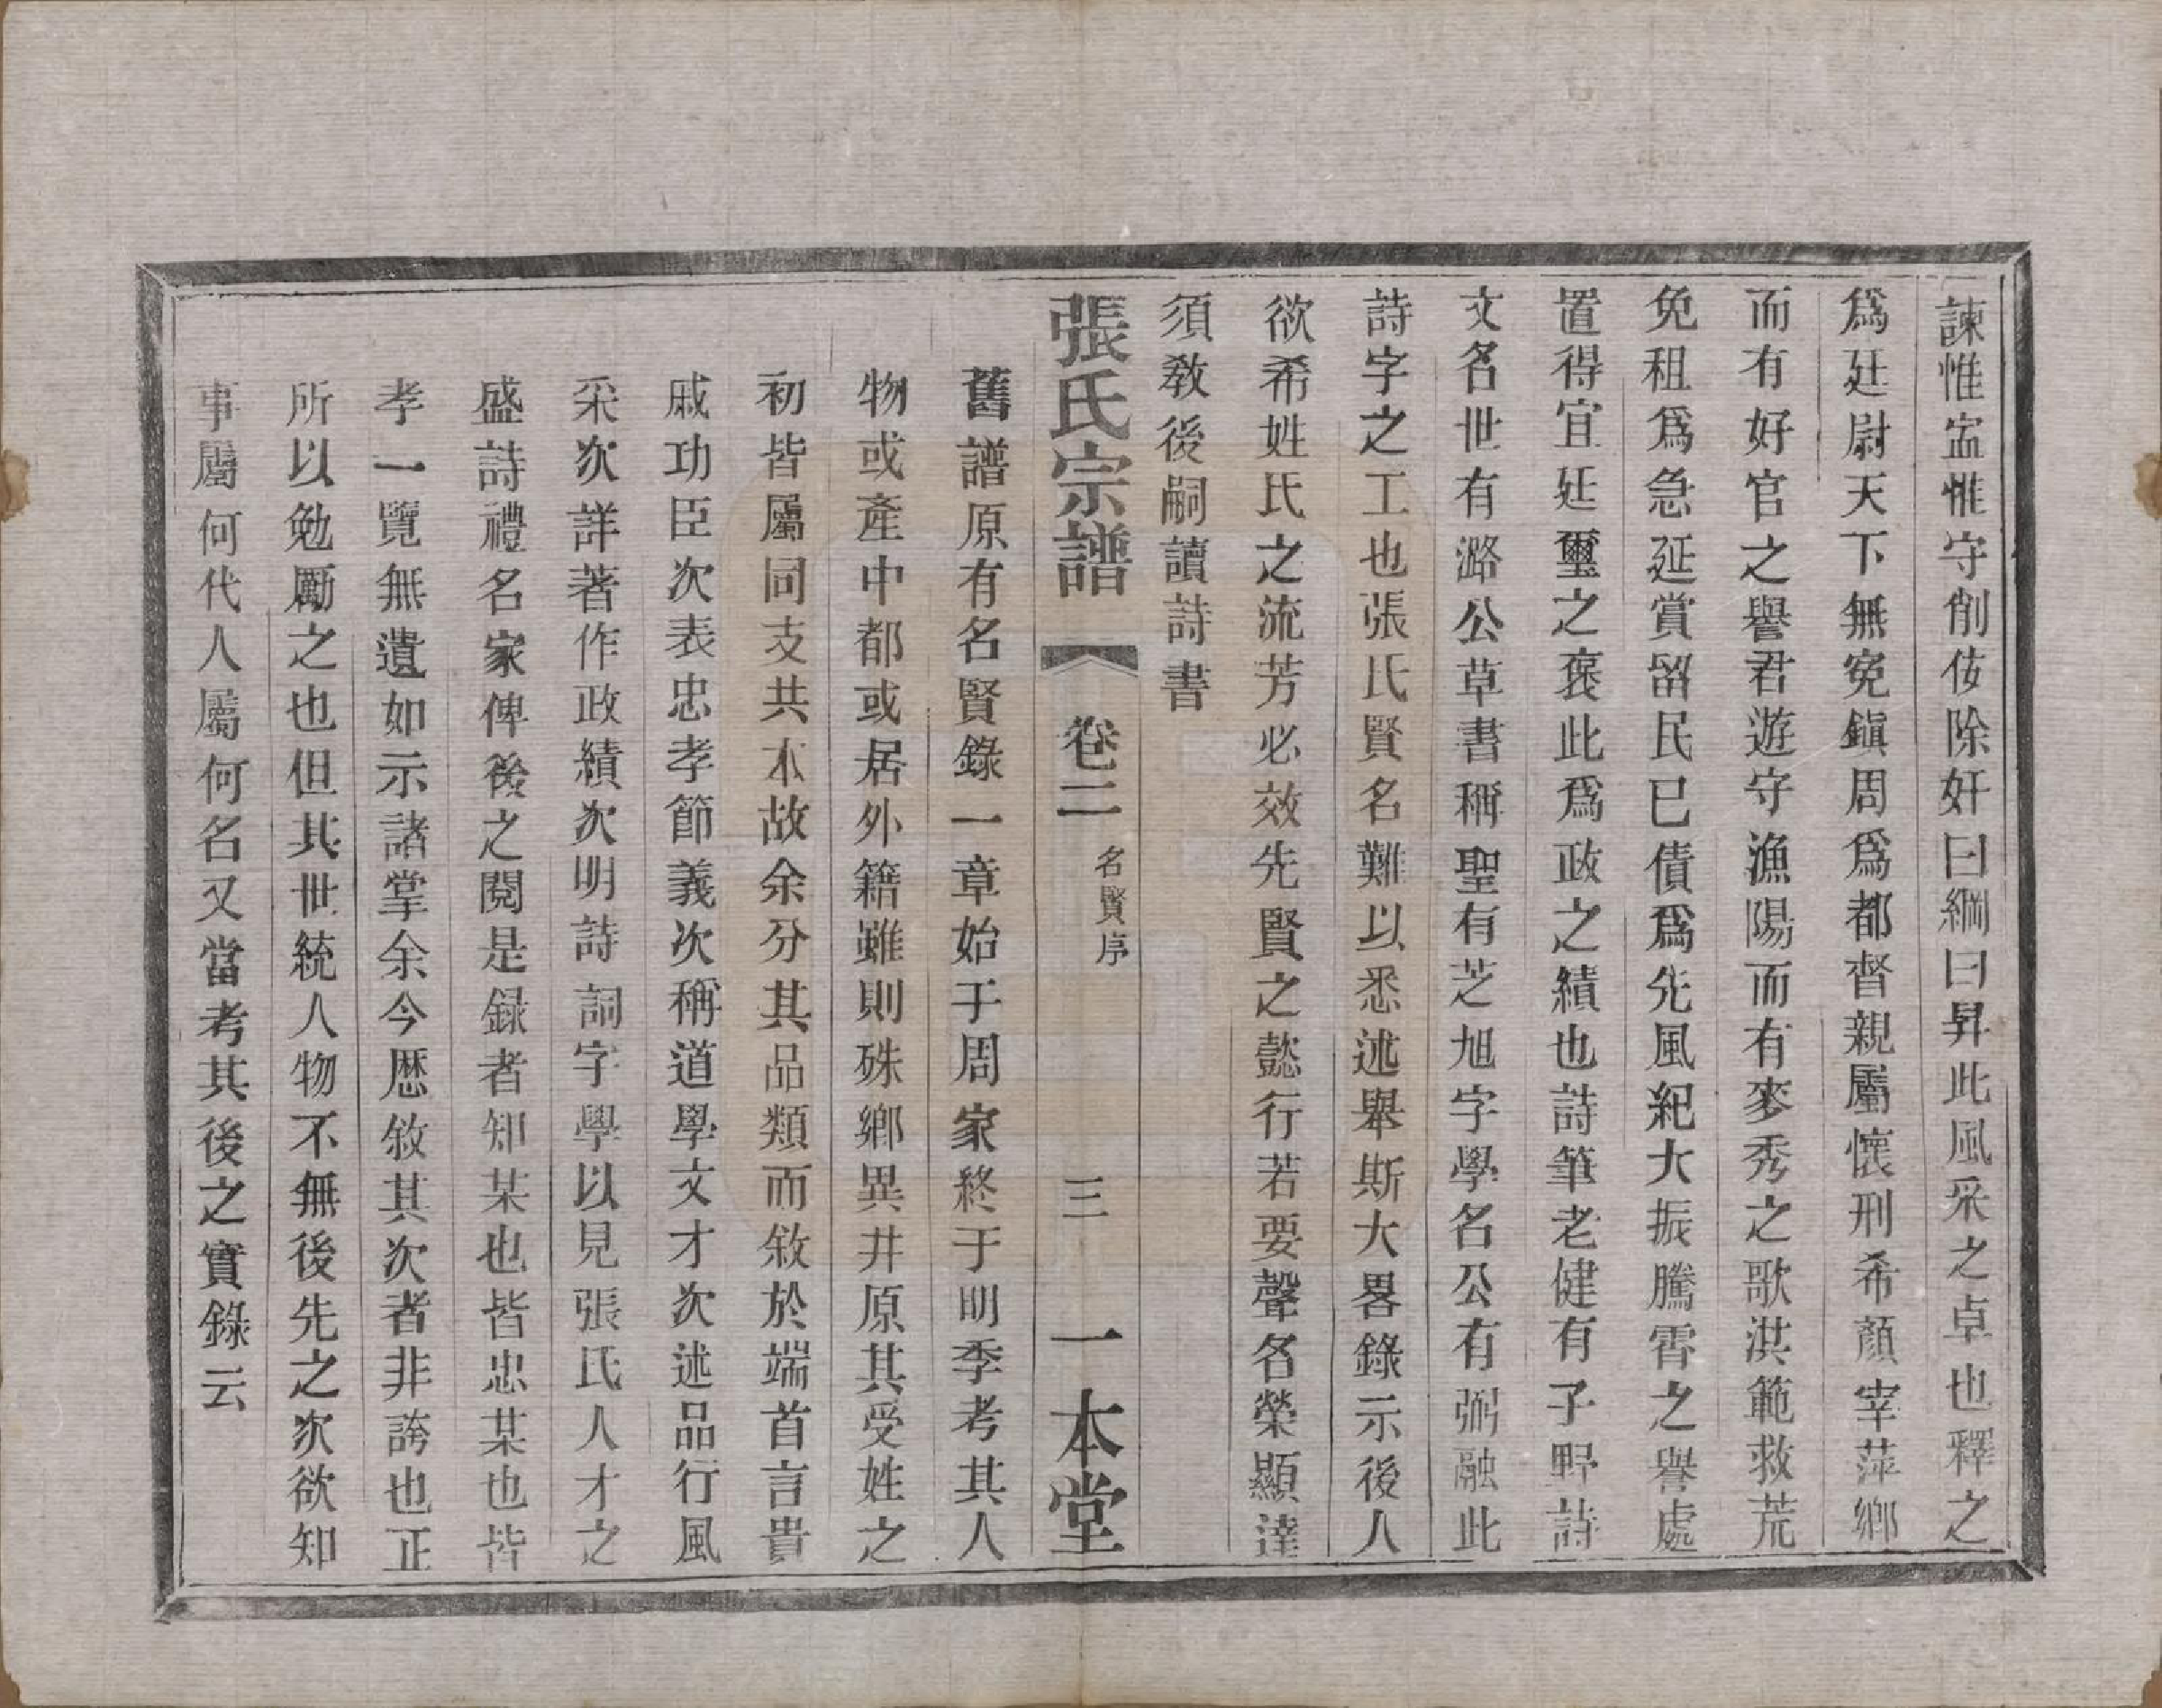 諫惟𥁕惟守削佞除奸曰綱曰昇此風采之卓也釋之
爲廷尉天下無寃鎭周爲都督親屬懷刑希顏宰萍鄉
而有好官之譽君遊守漁陽而有麥秀之歌洪範救荒
免租爲急延賞留民已債爲先風紀大振騰霄之譽處
置得宜廷璽之褒此爲政之績也詩筆老健有子野詩
文名世有潞公草書稱聖有芝旭字學名公有弼融此
詩字之工也張氏賢名難以悉述舉斯大畧錄示後人
欲希姓氏之流芳必效先賢之懿行若要聲名榮顯達
須敎後嗣讀詩書
張氏宗譜 卷二 名賢序 三 一本堂
舊譜原有名賢錄一章始于周家終于明季考其人
物或產中都或居外籍雖則殊鄉異井原其受姓之
初皆屬同支共本故余分其品類而敘於端首言貴
戚功臣次表忠孝節義次稱道學文才次述品行風
采次詳著作政績次明詩詞字學以見張氏人才之
盛詩禮名家俾後之閱是録者知某也皆忠某也皆
孝一覽無遺如示諸掌余今歷敘其次者非誇也正
所以勉勵之也但其世統人物不無後先之次欲知
事屬何代人屬何名又當考其後之實錄云